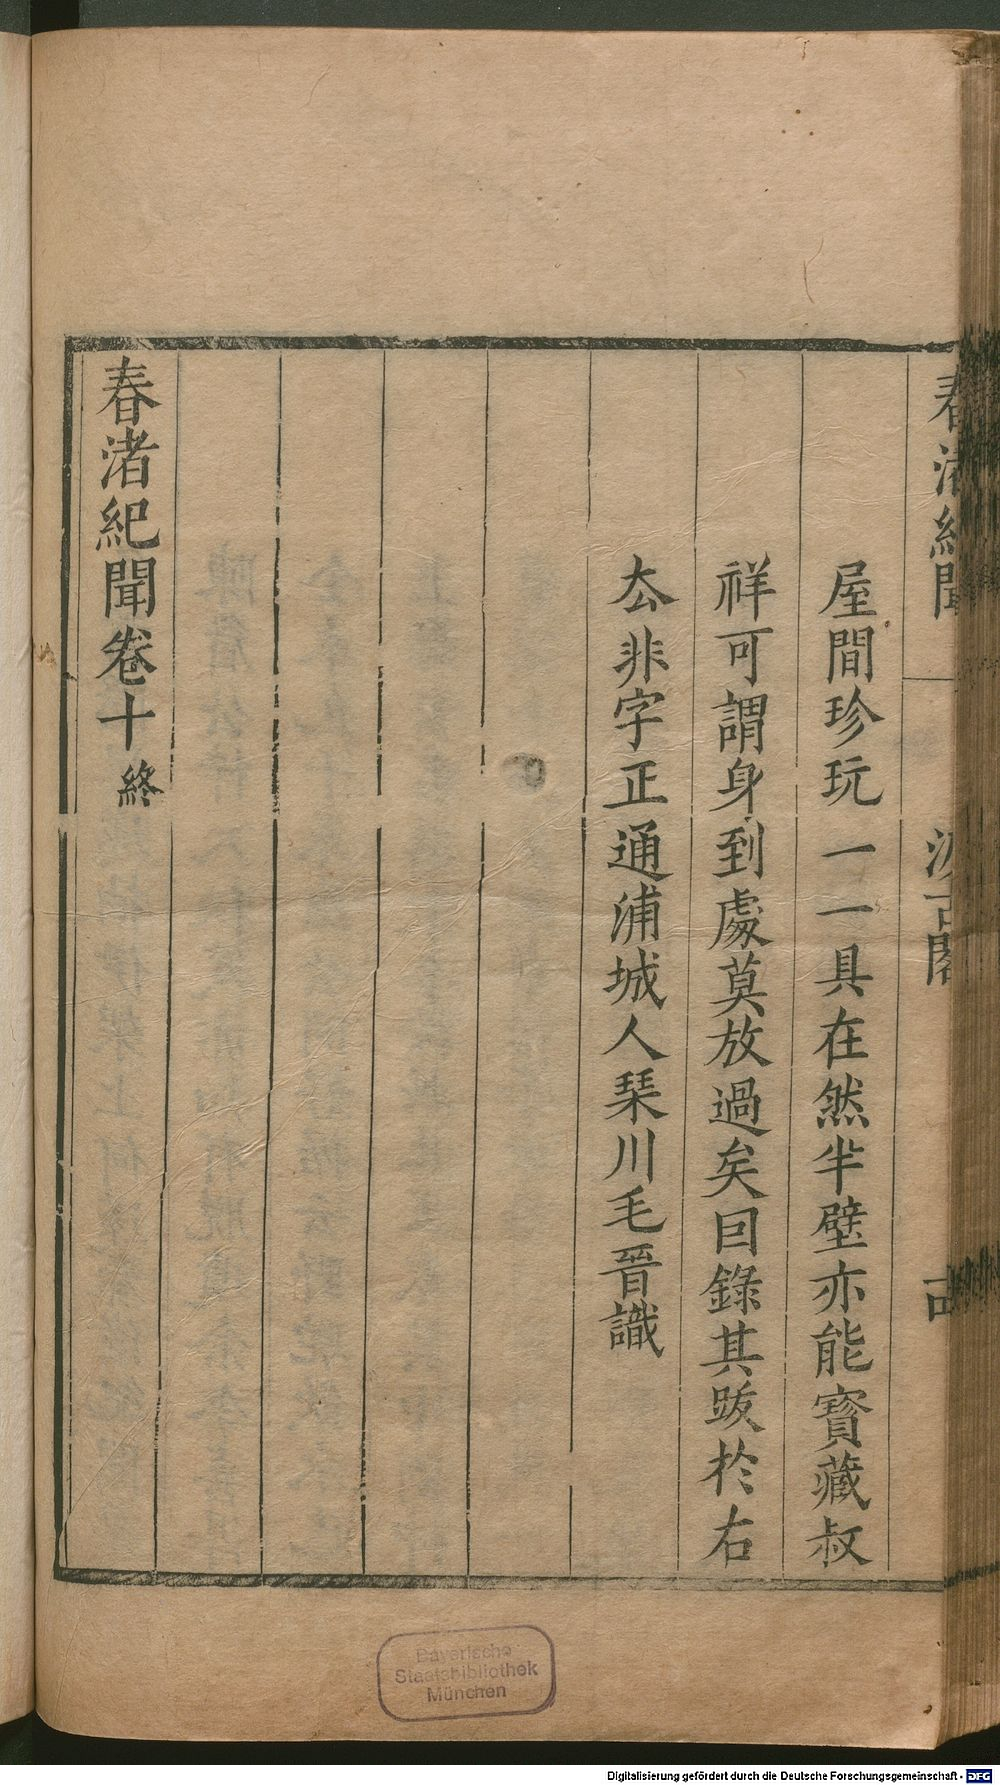 春渚紀聞
汲古閣
屋間珍玩一一具在然半壁亦能寶藏叔
祥可謂身到處莫放過矣因錄其跋於右
厺非字正通浦城人琹川毛晉識
春渚紀聞卷十終
Bayerische
Staatsbibliothek
München
Digitalisierung gefördert durch die Deutsche Forschungsgemeinschaft - DFG